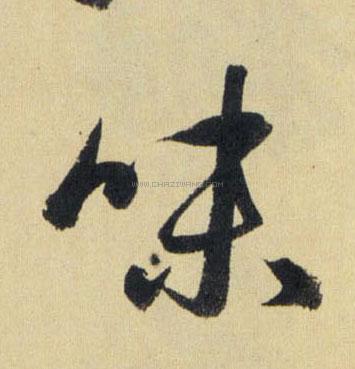 味
WWW.CHAZIWANG.COM